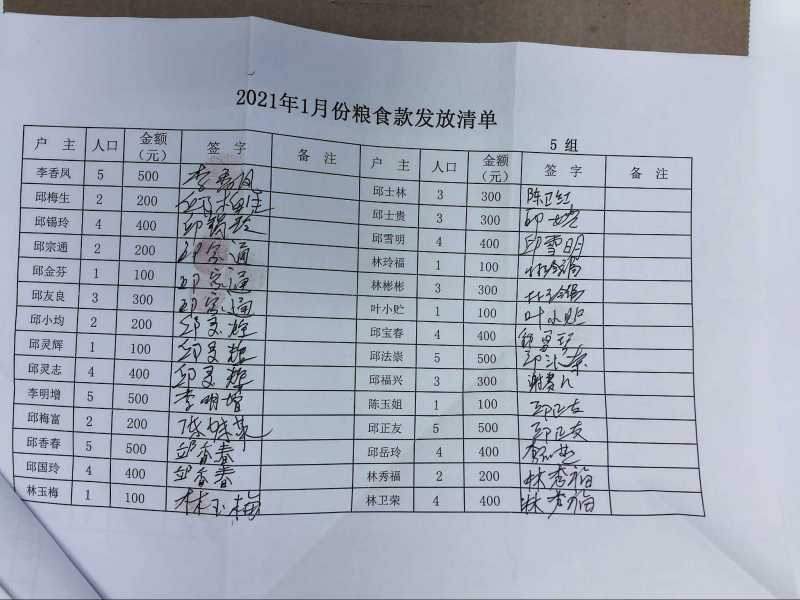 2021年1月份粮食款发放清单
5组
户 主 人口 金额(元) 签 字 备 注 户 主 人口 金额(元) 签 字 备 注
李香风 5 500 邱士林 3 300 陈卫红
邱梅生 2 200 邱梅生 邱士贵 3 300 邱士贵
邱锡玲 4 400 邱锡玲 邱雪明 4 400 邱雪明
邱宗通 2 200 邱宗通 林玲福 1 100 林玲福
邱金芬 1 100 邱宗通 林彬彬 3 300 林玲福
邱友良 3 300 邱宗通 叶小贮 1 100 叶小贮
邱小均 2 200 邱灵辉 邱宝春 4 400
邱灵辉 1 100 邱灵辉 邱法崇 5 500 邱法崇
邱灵志 4 400 邱灵辉 邱福兴 3 300
李明增 5 500 李明增 陈玉姐 1 100 邱正友
邱梅富 2 200 邱正友 5 500 邱正友
邱香春 5 500 邱香春 邱岳玲 4 400
邱国玲 4 400 邱香春 林秀福 2 200 林秀福
林玉梅 1 100 林玉梅 林卫荣 4 400 林秀福